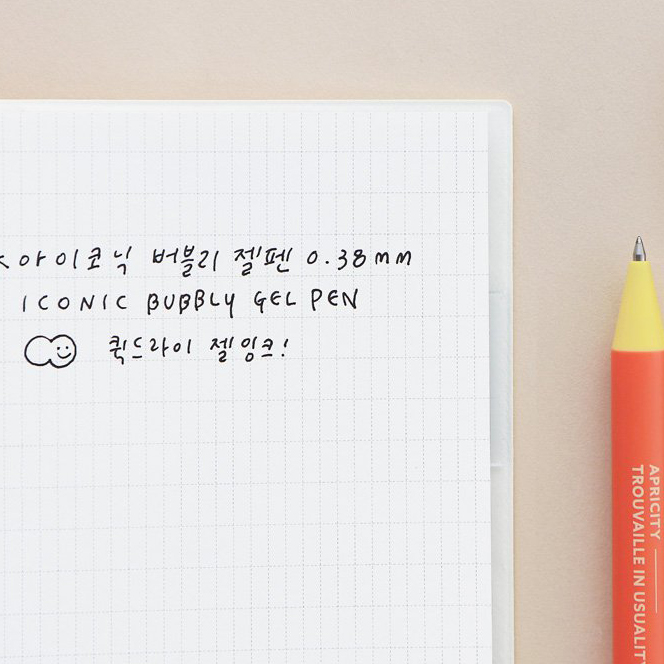 아이코닉 버블리 젤펜 0.38mm
ICONIC BUBBLY GEL PEN
퀵드라이 젤잉크!
APRICITY
TROUVAILLE IN USUALITY